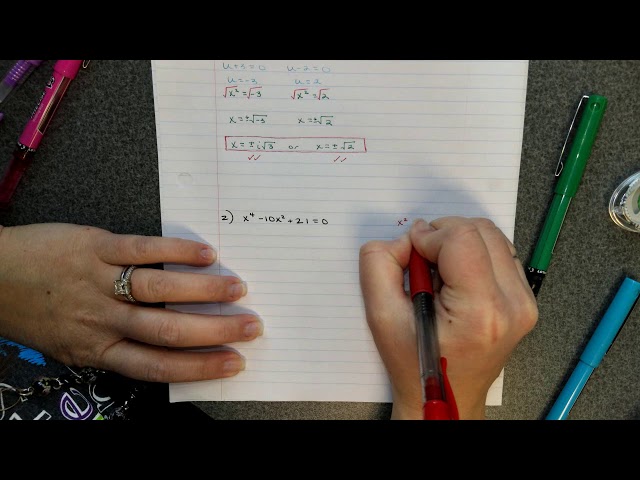 u+3=0 u-2=0
u=-3 u=2
√x² = √-3 √x² = √2
x = ±√-3 x = ±√2
x = ± i√3 or x = ± √2
✓✓ ✓✓
2) x⁴ -10x² +21=0 x²